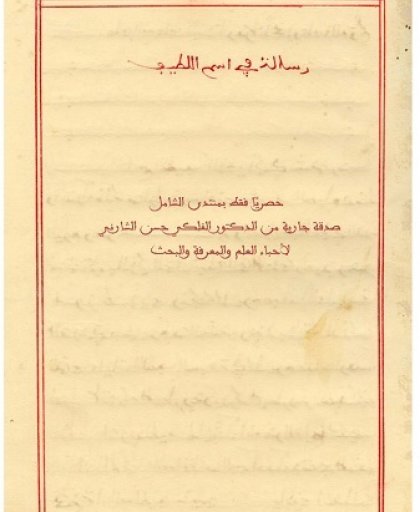 رسالة في اسم اللطيف
حصريا فقط بمنتدى الشامل
صدقة جارية من الدكتور الفلكي حسن الشارني
لأحباء العلم والمعرفة والبحث